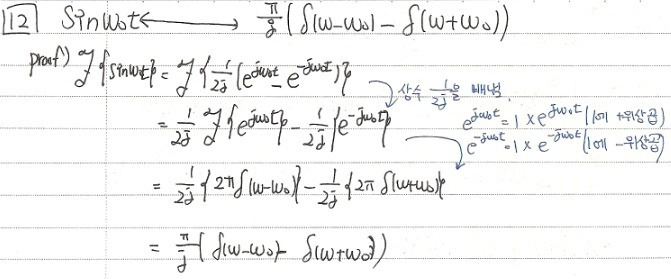 12 Sinω₀t ⟷ π/j (δ(ω-ω₀) - δ(ω+ω₀))
proof) ℱ{sinω₀t} = ℱ{1/2j (e^jω₀t - e^-jω₀t)}
상수 1/2j을 빼냄.
= 1/2j ℱ{e^jω₀t} - 1/2j {e^-jω₀t}
e^jω₀t = 1 × e^jω₀t (1에 +위상곱)
e^-jω₀t = 1 × e^-jω₀t (1에 -위상곱)
= 1/2j {2π δ(ω-ω₀)} - 1/2j {2π δ(ω+ω₀)}
= π/j (δ(ω-ω₀) - δ(ω+ω₀))